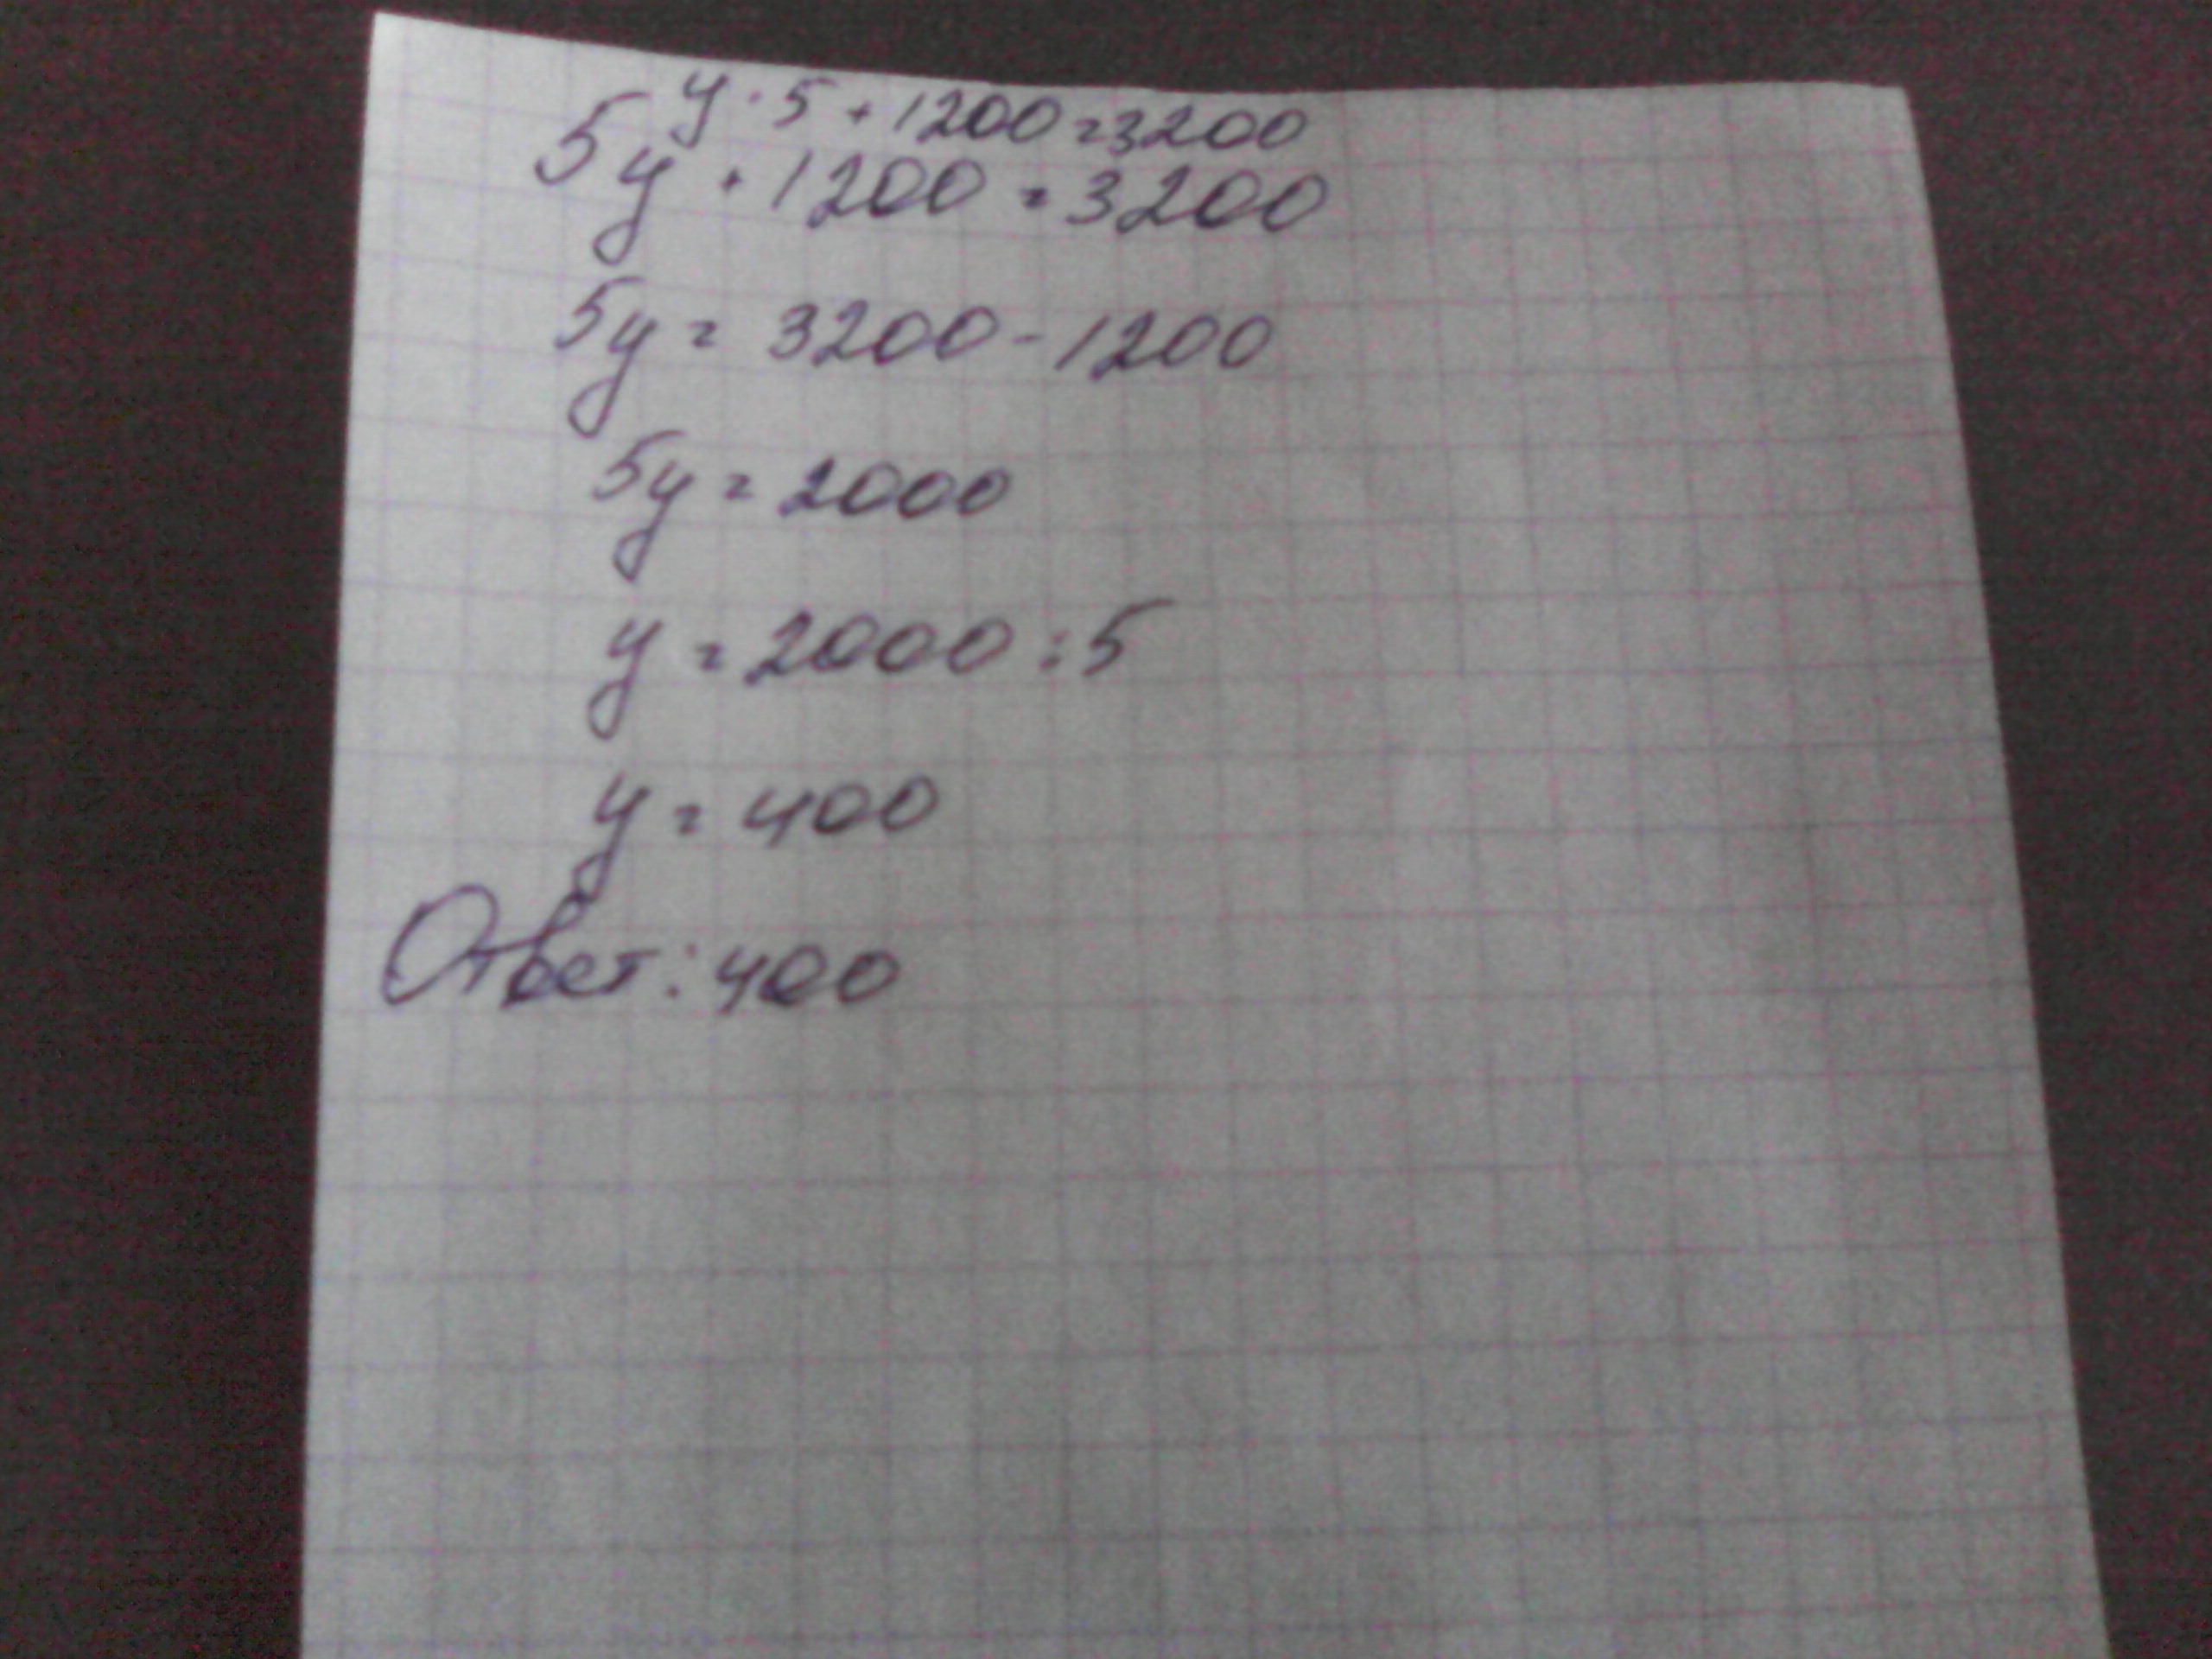 y · 5 + 1200 = 3200
5y + 1200 = 3200
5y = 3200 - 1200
5y = 2000
y = 2000 : 5
y = 400
Ответ: 400